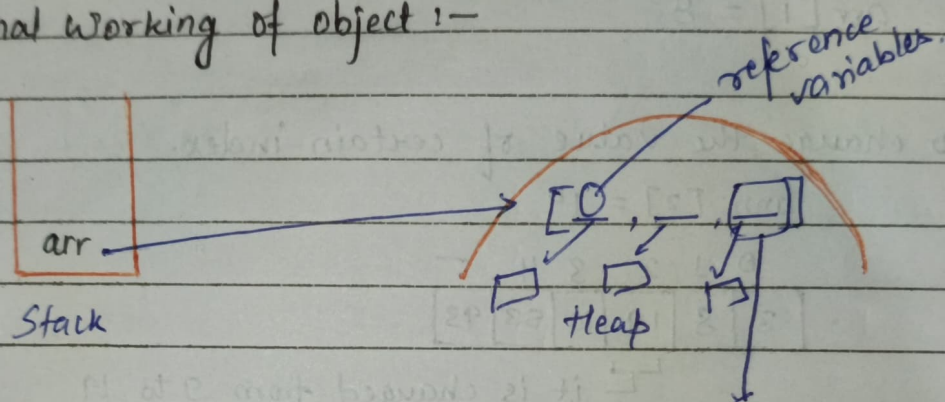 nal working of object :-
reference
variables.
[ __ , __ , __ ]
arr
Stack
Heap